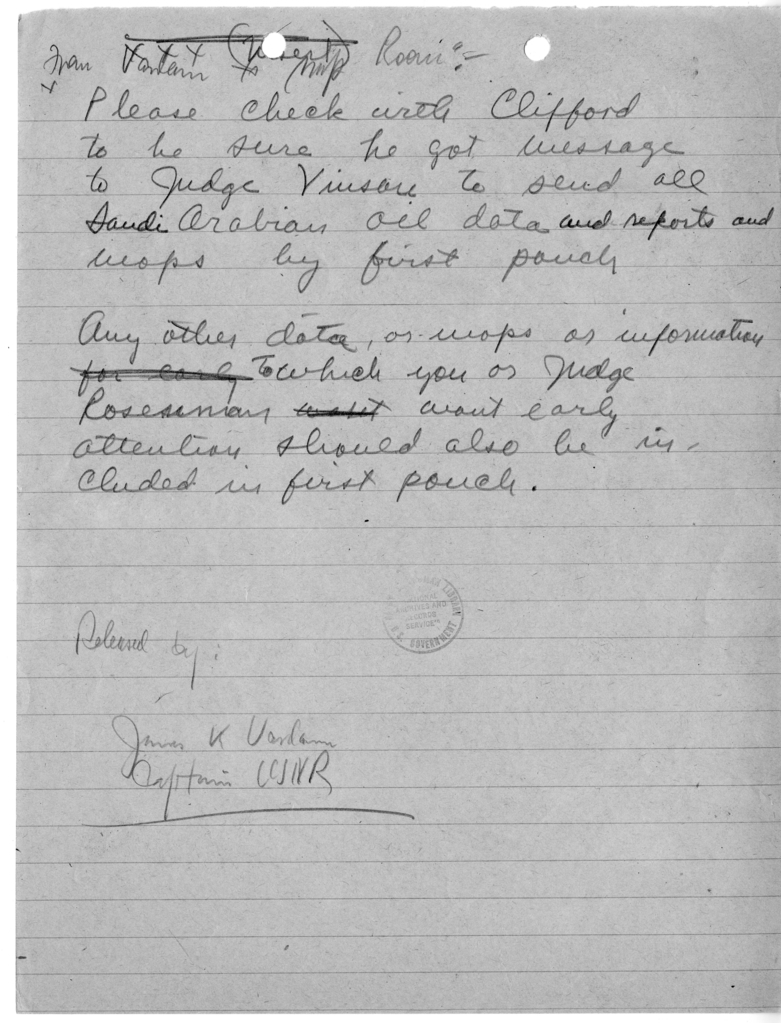 From Vardaman to Map Room:-
Please check with Clifford
to be sure he got message
to Judge Vinson to send all
Saudi Arabian oil data and reports and
maps by first pouch
Any other data, or maps or information
for early To which you or Judge
Rosenman want early
attention should also be in-
cluded in first pouch.
LIBRARY
ARCHIVES AND
RECORDS
SERVICE
U.S. GOVERNMENT
Released by:
James K Vardaman
Captain USNR